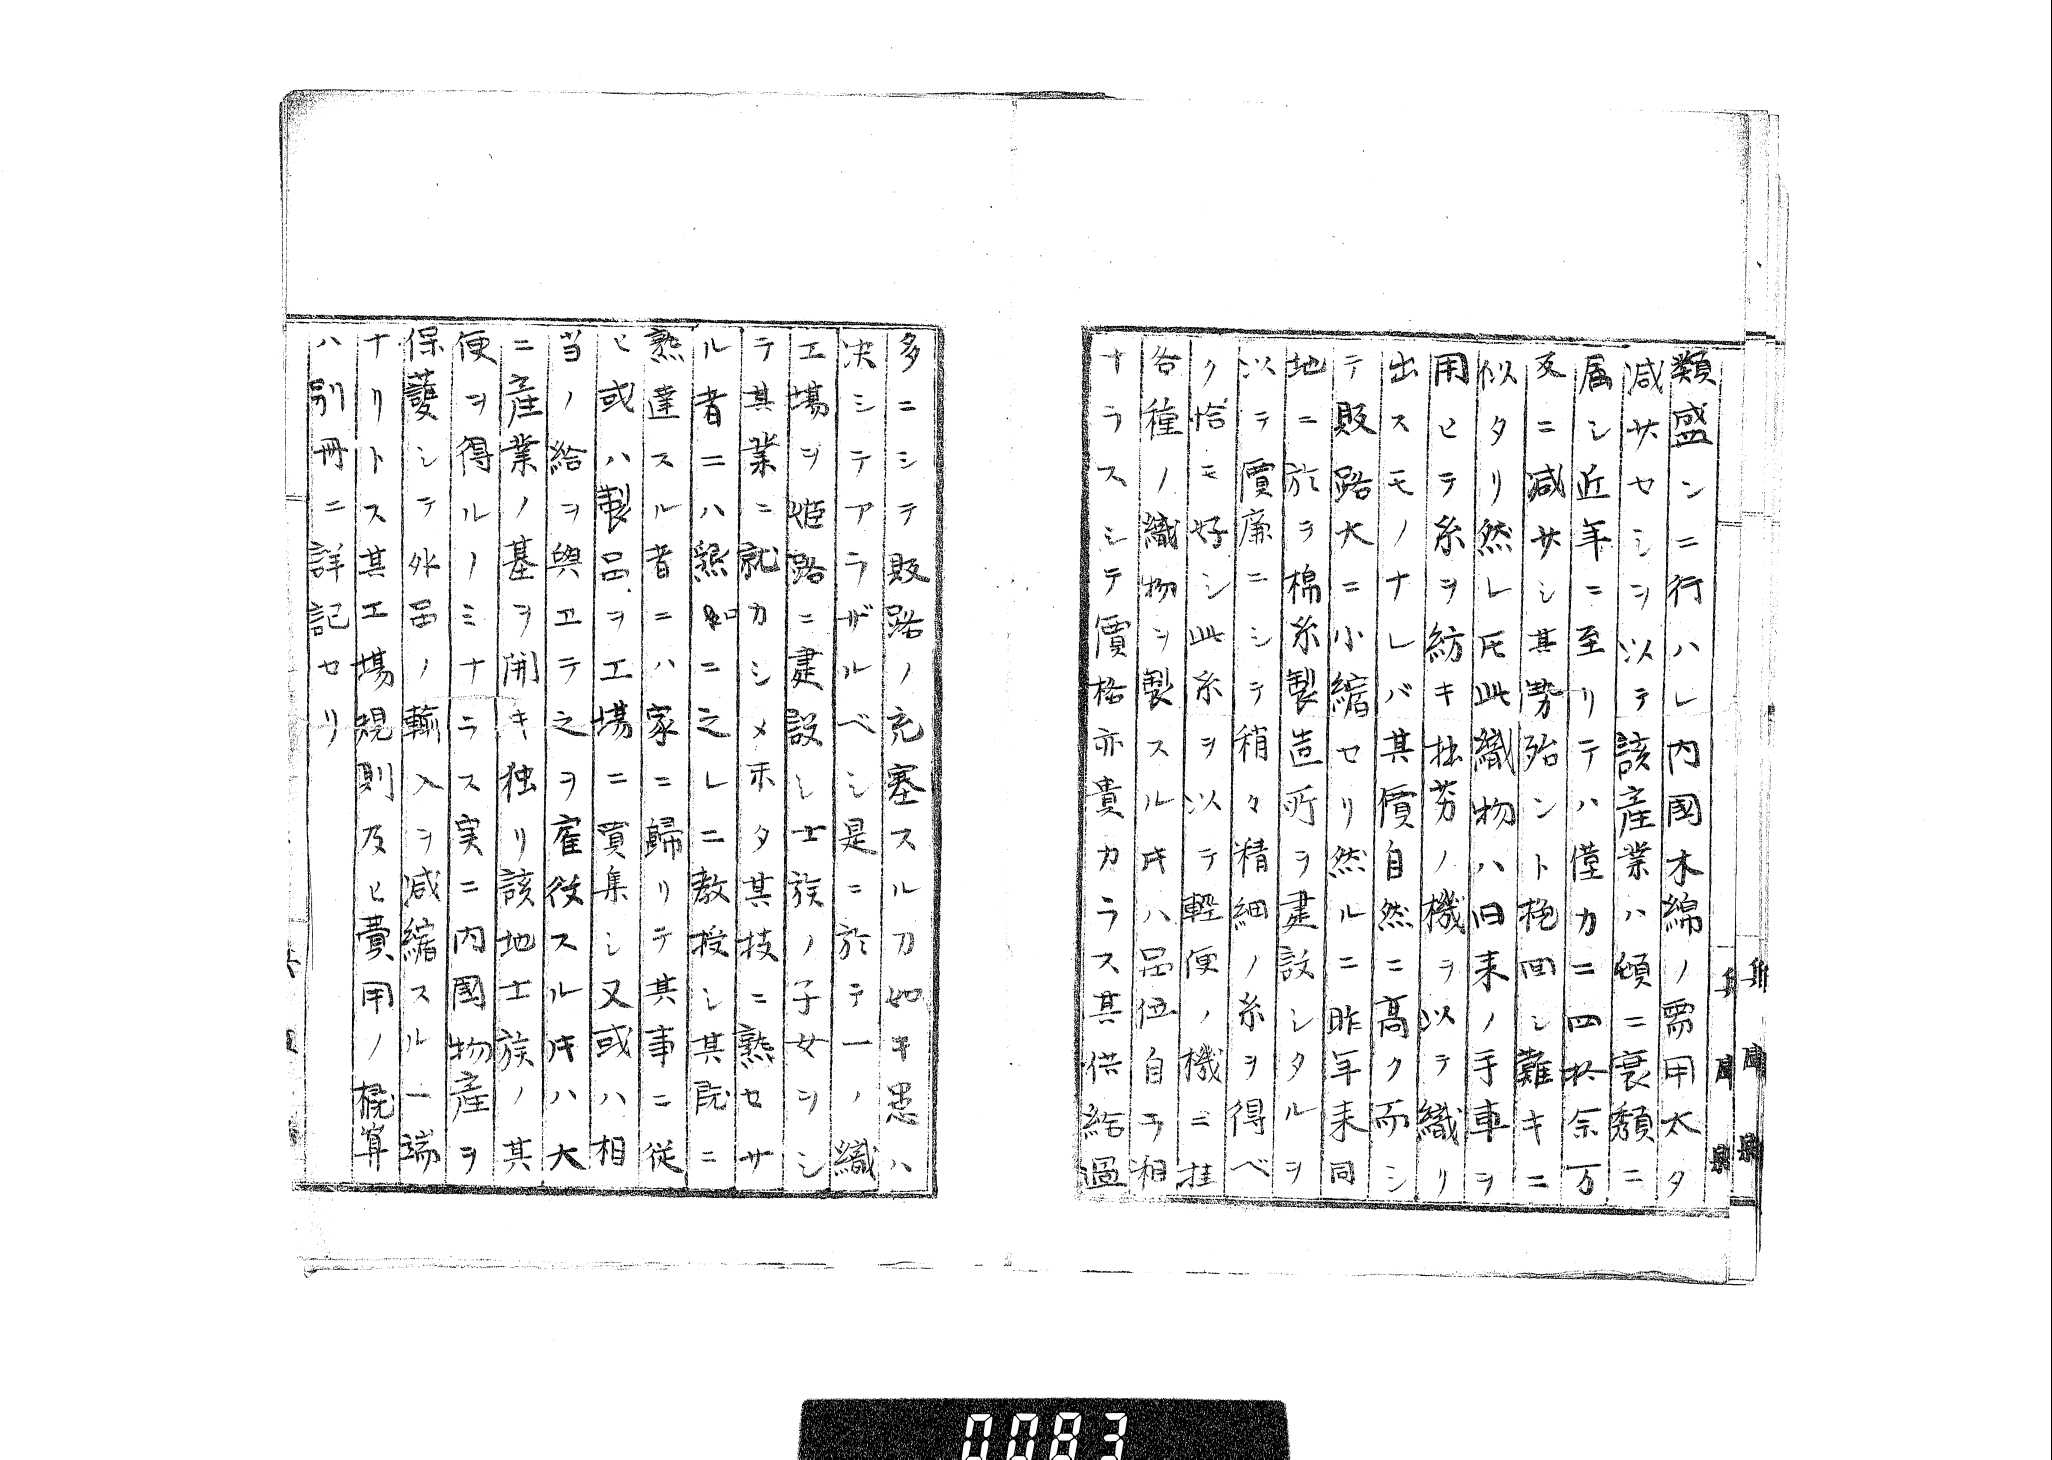 類盛ンニ行ハレ内國木綿ノ需用太タ
減サセシヲ以テ該産業ハ頓ニ衰頽ニ
属シ近年ニ至リテハ僅カニ四拾余万
反ニ減サシ其勢殆ント挽回シ難キニ
似タリ然レ𪜈此織物ハ旧来ノ手車ヲ
用ヒテ糸ヲ紡キ拙劣ノ機ヲ以テ織リ
出スモノナレバ其價自然ニ高ク而シ
テ販路大ニ小縮セリ然ルニ昨年来同
地ニ於ヲ棉糸製造所ヲ建設シタルヲ
以テ價廉ニシテ稍々精細ノ糸ヲ得ベ
ク恰モ好シ此糸ヲ以テ軽便ノ機ニ挂
各種ノ織物ヲ製スル𬼀ハ品位自ラ相
ナラスシテ價格亦貴カラス其供給過
多ニシテ販路ノ充塞スル刀如キ患ハ
决シテアラザルベシ是ニ於テ一ノ織
工場ヲ姫路ニ建設シ士族ノ子女ヲシ
テ其業ニ就カシメ未タ其技ニ熟セサ
ル者ニハ懇切ニ之レニ教授シ其既ニ
熟達スル者ニハ家ニ歸リテ其事ニ従
ヒ或ハ製品ヲ工場ニ買集シ又或ハ相
当ノ給ヲ與エテ之ヲ雇役スル𬼀ハ大
ニ産業ノ基ヲ開キ独リ該地士族ノ其
便ヲ得ルノミナラス実ニ内國物産ヲ
保護シテ外品ノ輸入ヲ減縮スル一端
ナリトス其工場規則及ヒ費用ノ概算
ハ別冊ニ詳記セリ
兵庫縣
0083